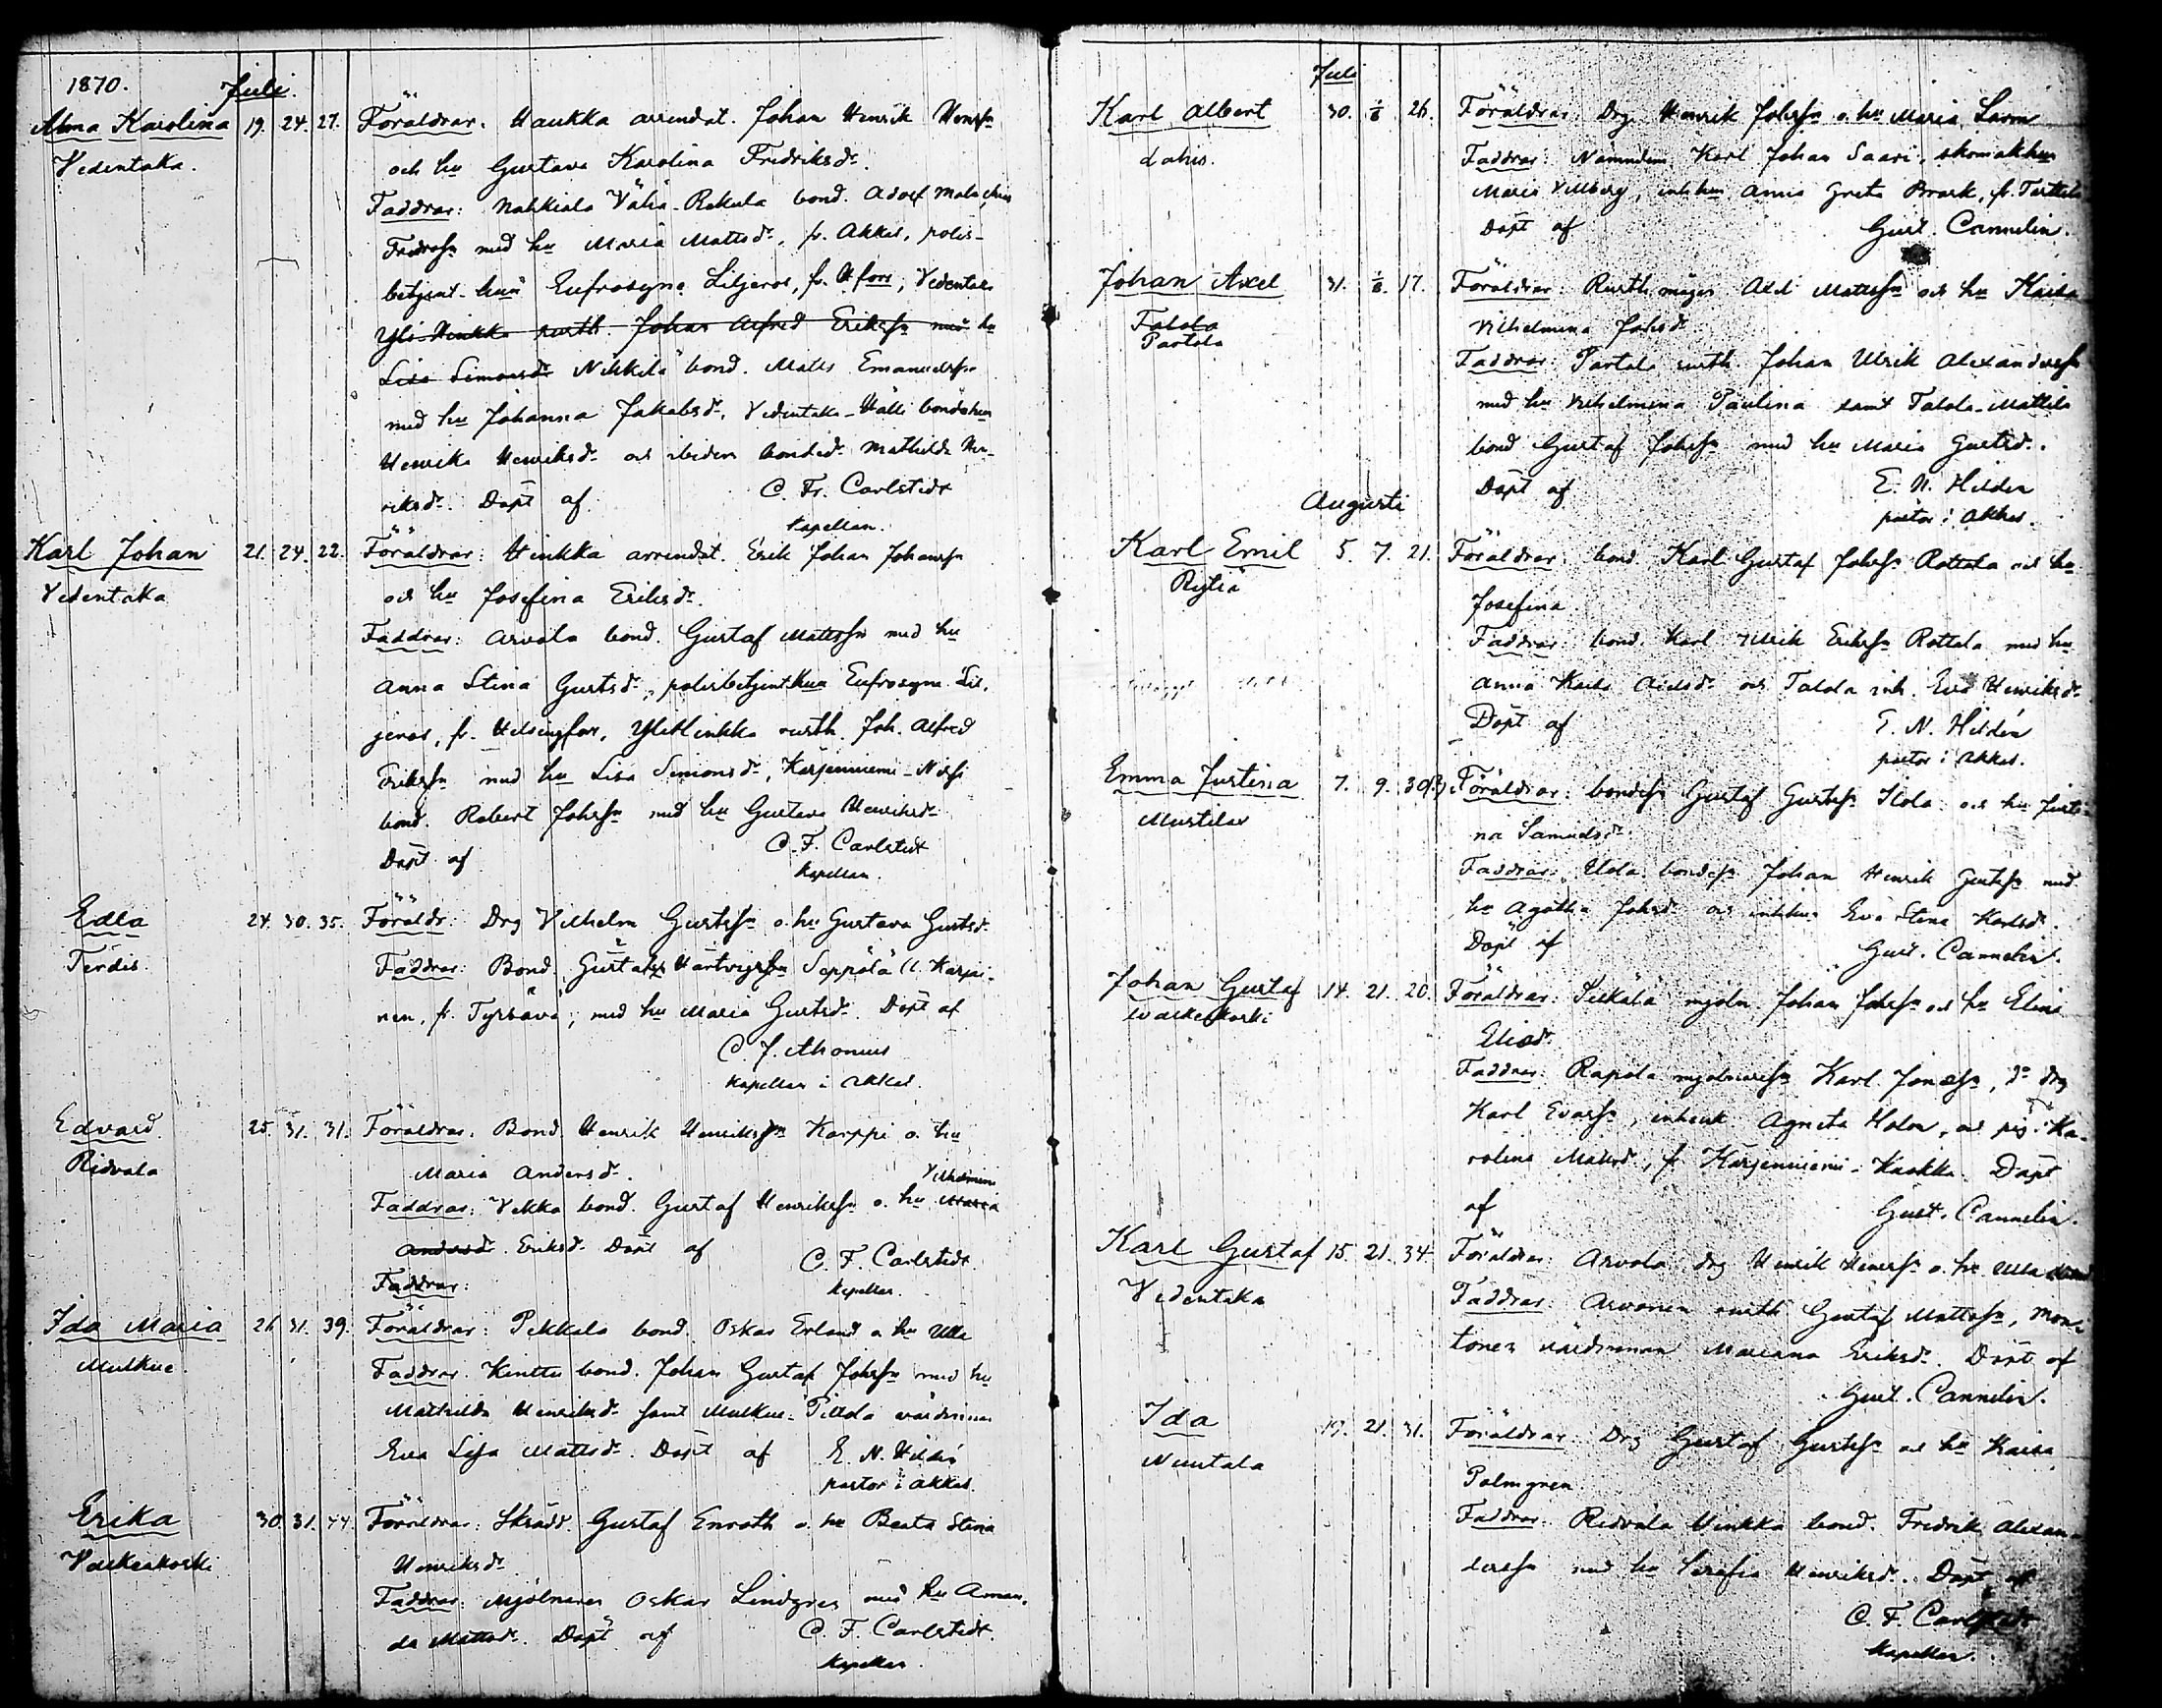 1870. Juli.
Alma Karolina 19. 24. 27. Föräldrar: Haukka arrendat. Johan Henrik Henrssn
Vedentaka. och hu Gustava Karolina Fredriksdr
Faddrar: Nahkiala Vähä-Rekula bond. Adolf
med hu Maria Mattsdr, fr. Akkas, polis-
betjent. hun Eufrosyne Liljeros, fr. Hfors, Vedentaka
Yli-Hinkka rusth. Johan Alfred Erikssn med hu
Lisa Simonsdr Nikkilä bond. Matts Emanuelssn
med hu Johanna Jakobsdr, Vedentaka-Hälli bondehun
Henrika Henriksdr och ibidem bonded. Mathilda Hen-
riksdr. Döpt af C. Fr. Carlstedt
Kapellan.
Karl Johan 21. 24. 22. Föräldrar: Hinkka arrendat. Erik Johan Johanssn
Vedentaka och hu Josefina Eriksdr.
Faddrar: Arvola bond. Gustaf Mattssn med hu
Anna Stina Gustsdr, polisbetjent.hun Eufrosyne Lil-
jeros, fr. Helsingfors, YliHinkka rusth. Joh. Alfred
Erikssn med hu Lisa Simonsdr, Kärjenniemi-
bond. Robert Johssn med hu Gustava Henriksdr
Döpt af C. F. Carlstedt
Kapellan.
Edla 24. 30. 35. Föräldr: Drg Vilhelm Gustssn o. hu Gustava Gustsdr
Terdis. Faddrar: Bond. Gustaf Hartvigssn Seppälä (l. Karpi-
nen, fr. Tyrvävä), med hu Maria Gustsdr. Döpt af
C. J.
Kapellan i Akkas.
Edvard 25. 31. 31. Föräldrar: Bond. Henrik Henrikssn Karppi o. hu
Ridvala Maria Andersdr.
Vilhelmina
Faddrar: Vekka bond. Gustaf Henrikssn o. hu Maria
Andersdr. Eriksdr. Döpt af C. F. Carlstedt
Faddrar: Kapellan.
Ida Maria 26 31. 39. Föräldrar: Pekkala bond. Oskar Erland o hu Ulla
Mulkue. Faddrar: Kinttu bond. Johan Gustaf Johssn med hu
Mathilda Henriksdr samt Mulkue-Pittola värdinnan
Eva Lisa Mattsdr. Döpt af E. N. Hildén
pastor i Akkas.
Erika 30. 31. 44. Föräldrar: Skrädd. Gustaf Enroth o. hu Beata Stina
Valkeakoski Henriksdr
Faddrar: Mjölnaren Oskar Lindgren med hu Aman-
da Mattsdr. Döpt af C. F. Carlstedt.
Kapellan.
Juli
Karl Albert 30. 1/8 26. Föräldrar: Drg. Henrik Johssn o. hu Maria
Lahis. Faddrar: Nämndem. Karl Johan Saari, skomakhun
Maria Villberg, inhhun Anna Greta
Döpt af Gust. Cannelin.
Johan Axel 31. 1/8. 17. Föräldrar: Rusth.mågen Axel Mattssn och hu Kaisa
Talola Vilhelmina Johsdr
Partola Faddrar: Partola rusth. Johan Ulrik Alexanderssn
med hu Vilhelmina Paulina samt Talola-Mattila
bond Gustaf Johssn med hu Maria Gustsdr.
Döpt af E. N. Hildén
pastor i Akkas.
Augusti
Karl Emil 5. 7. 21. Föräldrar: bond. Karl Gustaf Johssn Rottola och hu
Josefina.
Faddrar: bond. Karl Ulrik Erikssn Rottola med hu
Anna Kaisa Axelsdr och Talola inh. Eva Henriksdr
Döpt af E. N. Hildén
pastor i Akkas.
Emma Justina 7. 9. 30 Föräldrar: bondessn Gustaf Gustssn Ilola och hu Justi-
na Samuelsdr.
Faddrar: Ulola bondessn Johan Henrik Gustssn med
hu Agatha Johsdr och inhhun Eva Stina Karlsdr.
Döpt af Gust. Cannelin.
Johan Gustaf 14. 21. 20. Föräldrar: mjöln. Johan Johssn och hu Elina
Walkeakoski Eliasdr.
Faddrar: Rapola mjölnaressn Karl Jonassn, do drg
Karl Evarssn, inhensk Agneta Holm, och pig. Ka-
rolina Mattsdr, fr. Kärjenniemi-Kaokka. Döpt
af Gust. Cannelin.
Karl Gustaf 15. 21. 34. Föräldrar: Arvola drg Henrik Henrssn o. hu Ulla
Vedentaka Faddrar: Arvonen rusth Gustaf Mattssn, Mon-
tonen värdinnan Mariana Eriksdr. Döpt af
Gust. Cannelin.
Ida 19. 21. 31. Föräldrar: Drg Gustaf Gustssn och hu Kaisa
Nuutala Palmgren.
Faddrar: Ridvala Hinkka bond. Fredrik Alexan-
derssn med hu Serafia Henriksdr. Döpt af
C. F. Carlstedt
Kapellan.